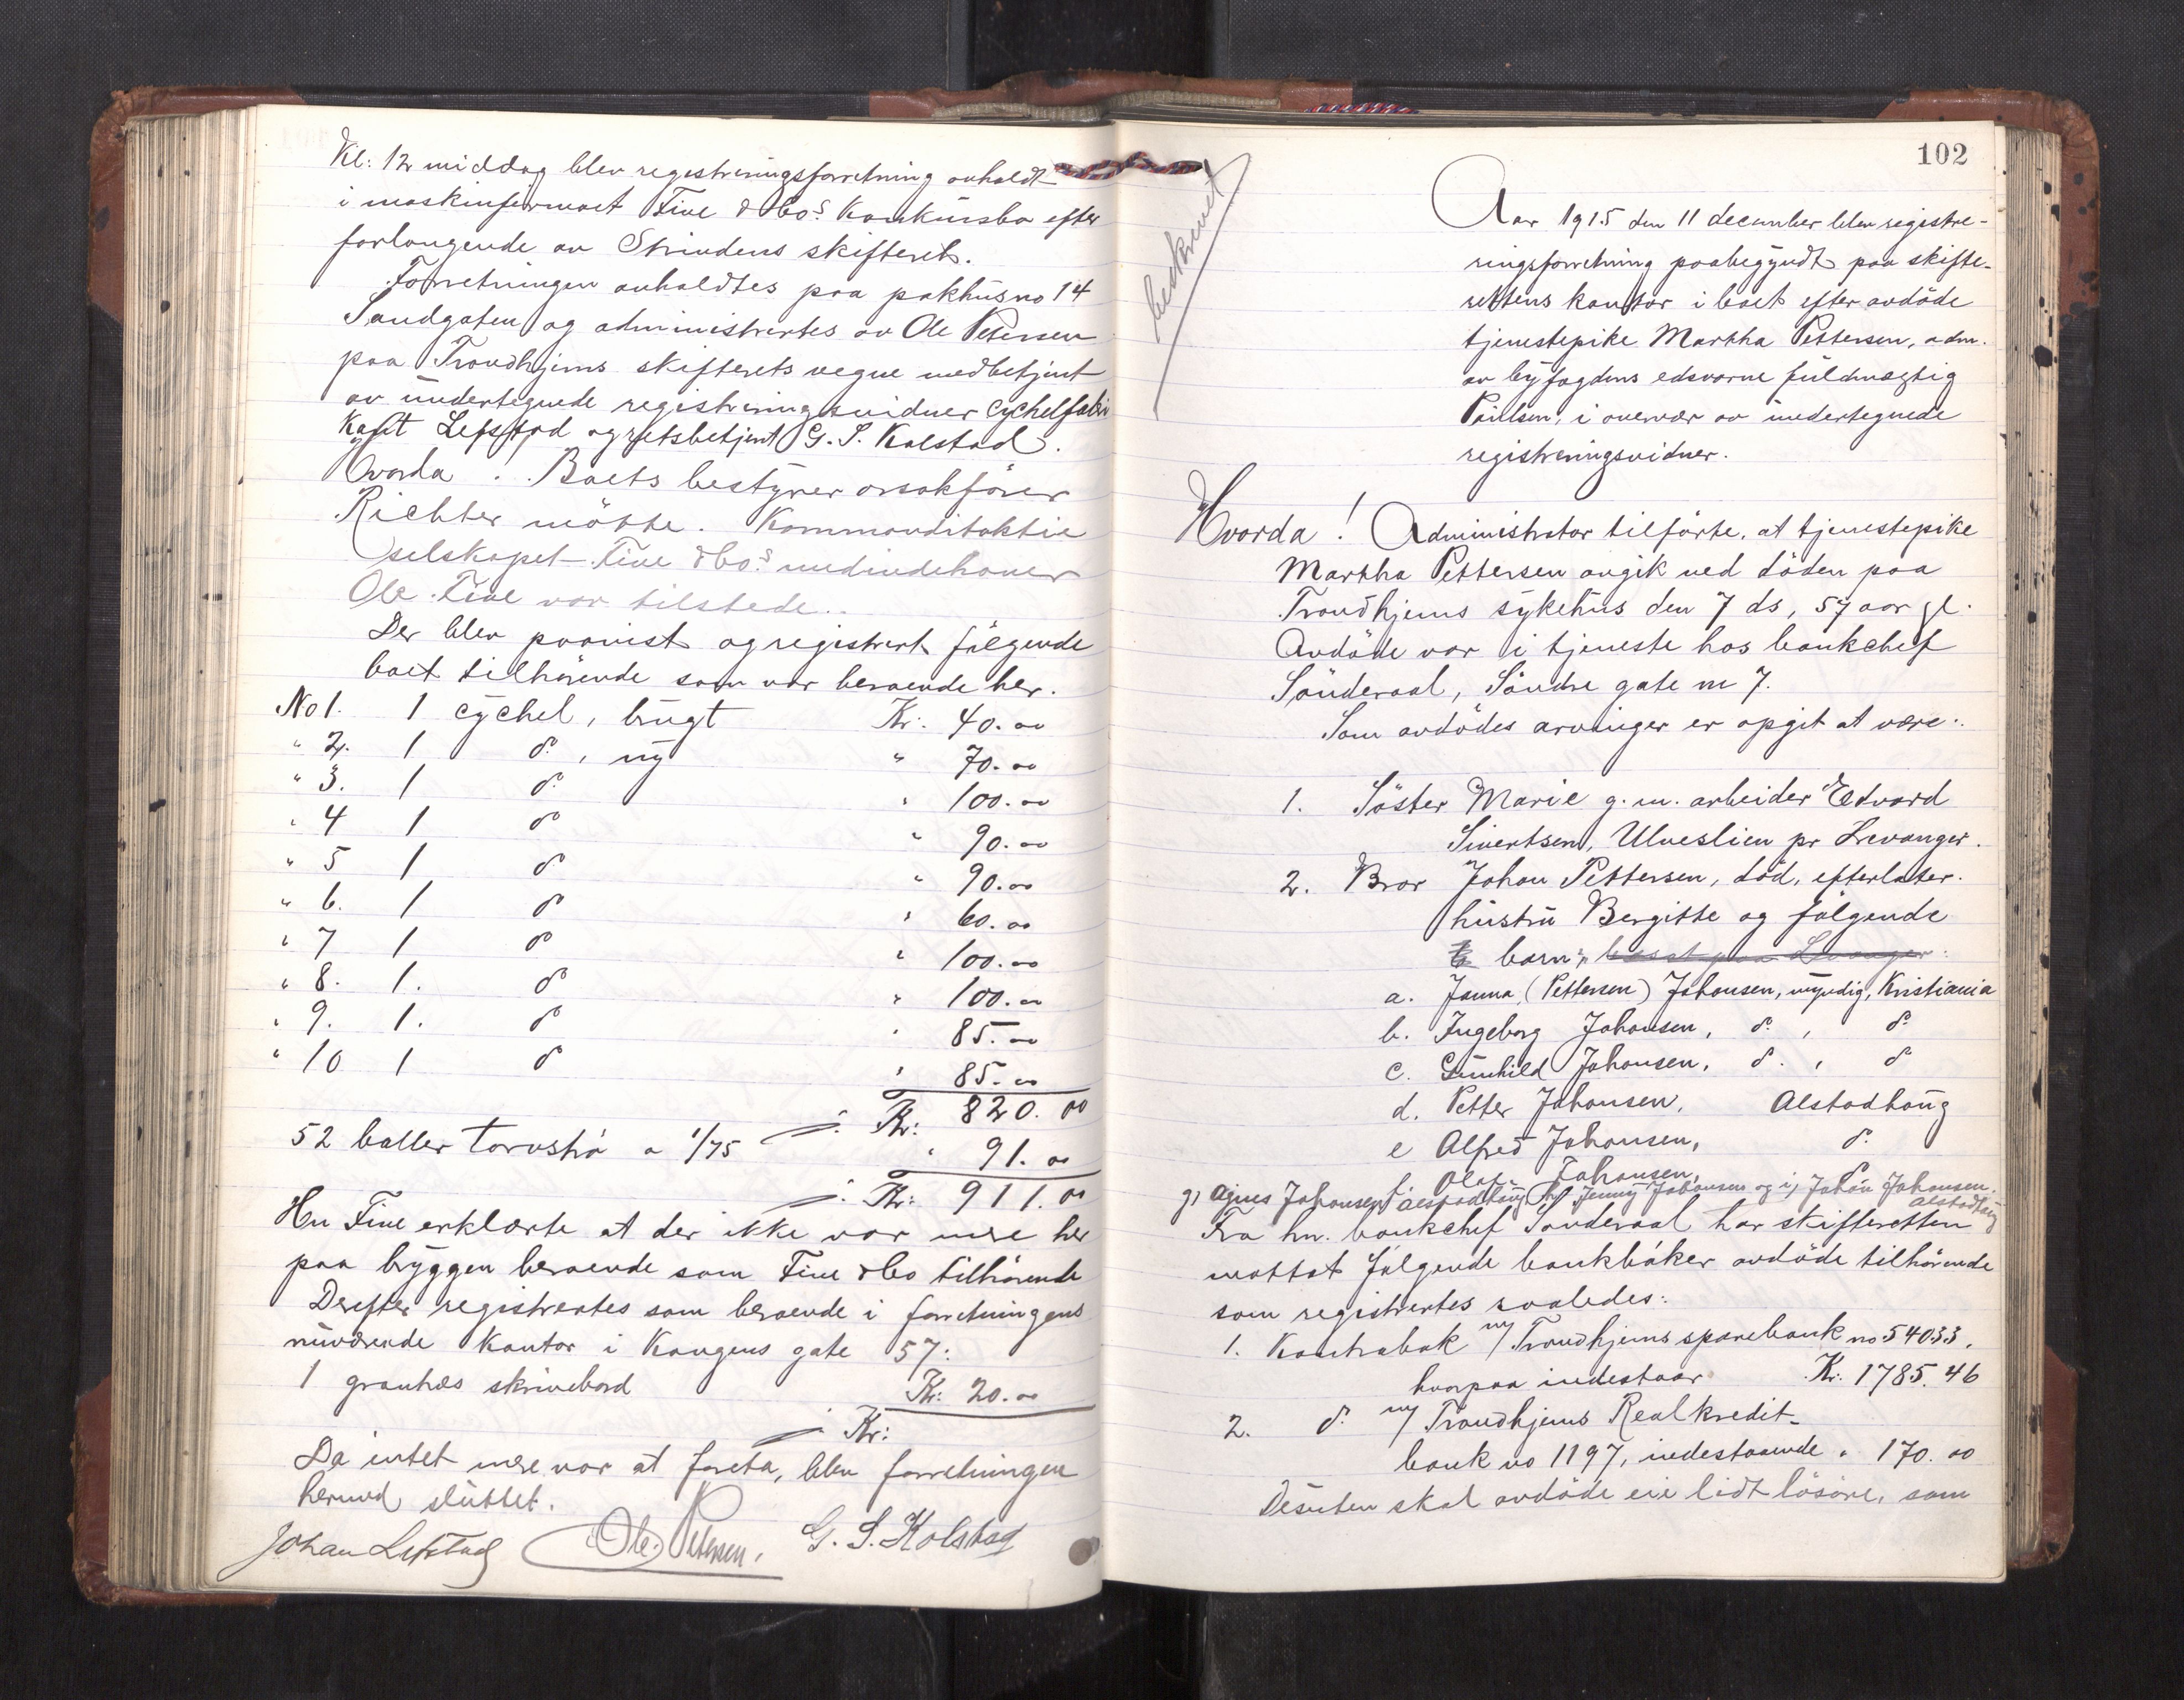 Kl: 12 middag blev registreringsforretning avholdt
i maskinfirmaet Fine & Co's konkursbo efter
forlangende av Strindens skifteret.
Forretningen avholdtes paa pakhus no 14
Sandgaten og administrertes av Ole Petersen
paa Trondhjems skifterets vegne medbetjent
av undertegnede registreringsvidner cyckelfabri
kant Lefstad og retsbetjent G. S. Kolstad.
Hvorda! Boets bestyrer orsakfører
Richter møtte. Kommanditaktie
selskapet Fine & Co's medindehaver
Ole Fine var tilstede.
Der blev paavist og registrert følgende
boet tilhørende som var beroende her.
No 1. 1 cyckel, brugt Kr: 40.00
" 2. 1 do, ny " 70.00
" 3. 1 do " 100.00
" 4 1 do " 90.00
" 5 1 do " 90.00
" 6. 1 do " 60.00
" 7 1 do " 100.00
" 8. 1. do " 100.00
" 9. 1. do " 85.00
" 10 1 do " 85.00
Kr: 820.00
52 baller torvstrø a 1/75 " 91.00
Kr: 911.00
Hr Fine erklærte at der ikke var mere her
paa bryggen beroende som Fine & Co tilhørende
Derefter registrertes som beroende i forretningens
nuværende kontor i Kongens gate 57:
1 skrivebord Kr: 20.00
Kr:
Da intet mere var at foreta, blev forretningen
hermed sluttet.
Johan Lefstad Ole Petersen. G. S. Kolstad
102
beskrevet
Aar 1915 den 11 december blev registre-
ringsforretning paabegyndt paa skifte-
rettens kontor i boet efter avdøde
tjenestepike Martha Pettersen, adm.
av byfogdens edsvorne fuldmægtig
Paulsen, i overvær av undertegnede
registreringsvidner.
Hvorda! Administrator tilførte, at tjenestepike
Martha Pettersen avgik ved døden paa
Trondhjems sykehus den 7 ds, 57 aar gl.
Avdøde var i tjeneste hos bankchef
Sønderaal, Søndre gate no 7.
Som avdødes arvinger er opgit at være:
1. Søster Marie g. m. arbeider Edvard
Sivertsen, Ulveslien pr Levanger.
2. Bror Johan Pettersen, død, efterlater
hustru Bergitte og følgende
barn: bosat paa Levanger:
a. Janna (Pettersen) Johansen, myndig, Kristiania
b. Ingeborg Johansen, do, do
c. Gunhild Johansen, do, do
d. Petter Johansen, Alstadhaug
e Alfred Johansen, do.
f. Olaf Johansen, do
g) Agnes Johansen, Alstadhaug h) Jenny Johansen og i) Johan Johansen.
Alstadhaug
Fra hr. bankchef Sønderaal har skifteretten
mottat følgende bankbøker avdøde tilhørende
som registrertes saaledes:
1. Kontrabok m/ Trondhjems sparebank no 54033,
hvorpaa indestaar Kr. 1785.46
2. do m/ Trondhjems Realkredit-
bank no 1197, indestaaende " 170.00
Desuten skal avdøde eie lidt løsøre, som